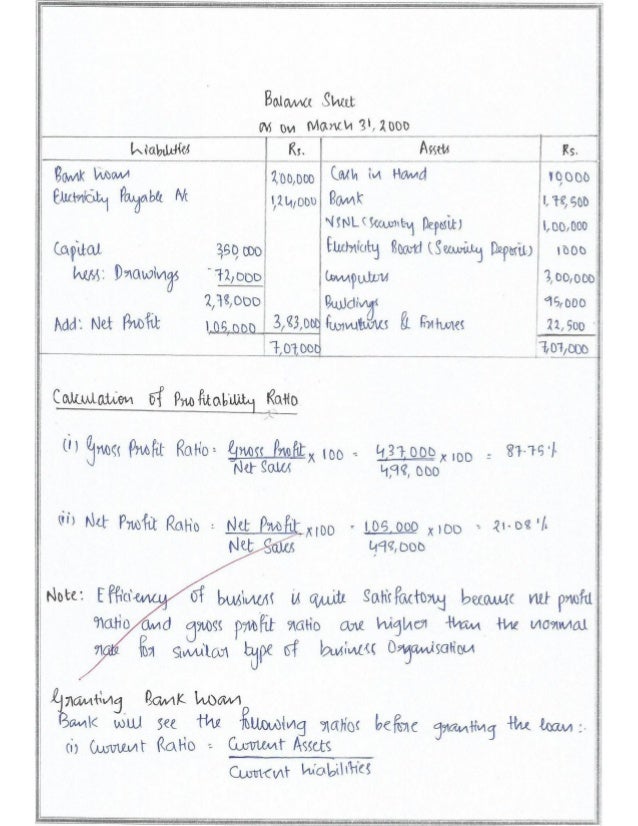 Balance Sheet
as on March 31, 2000
Liabilities Rs. Assets Rs.
Bank Loan 200,000 Cash in Hand 10,000
Electricity Payable A/c 1,24,000 Bank 1,78,500
VSNL (Security Deposit) 1,00,000
Capital 350,000 Electricity Board (Security Deposit) 1000
Less: Drawings 72,000 Computers 3,00,000
2,78,000 Buildings 95,000
Add: Net Profit 1,05,000 3,83,000 Furnitures & Fixtures 22,500
7,07,000 7,07,000
Calculation of Profitability Ratio
(i) Gross Profit Ratio = Gross Profit / Net Sales x 100 = 4,37,000 / 4,98,000 x 100 = 87.75%
(ii) Net Profit Ratio = Net Profit / Net Sales x 100 = 1,05,000 / 498,000 x 100 = 21.08%
Note: Efficiency of business is quite satisfactory because net profit
ratio and gross profit ratio are higher than the normal
rate for similar type of business Organisation
Granting Bank Loan
Bank will see the following ratios before granting the loan:-
(i) Current Ratio = Current Assets
Current Liabilities